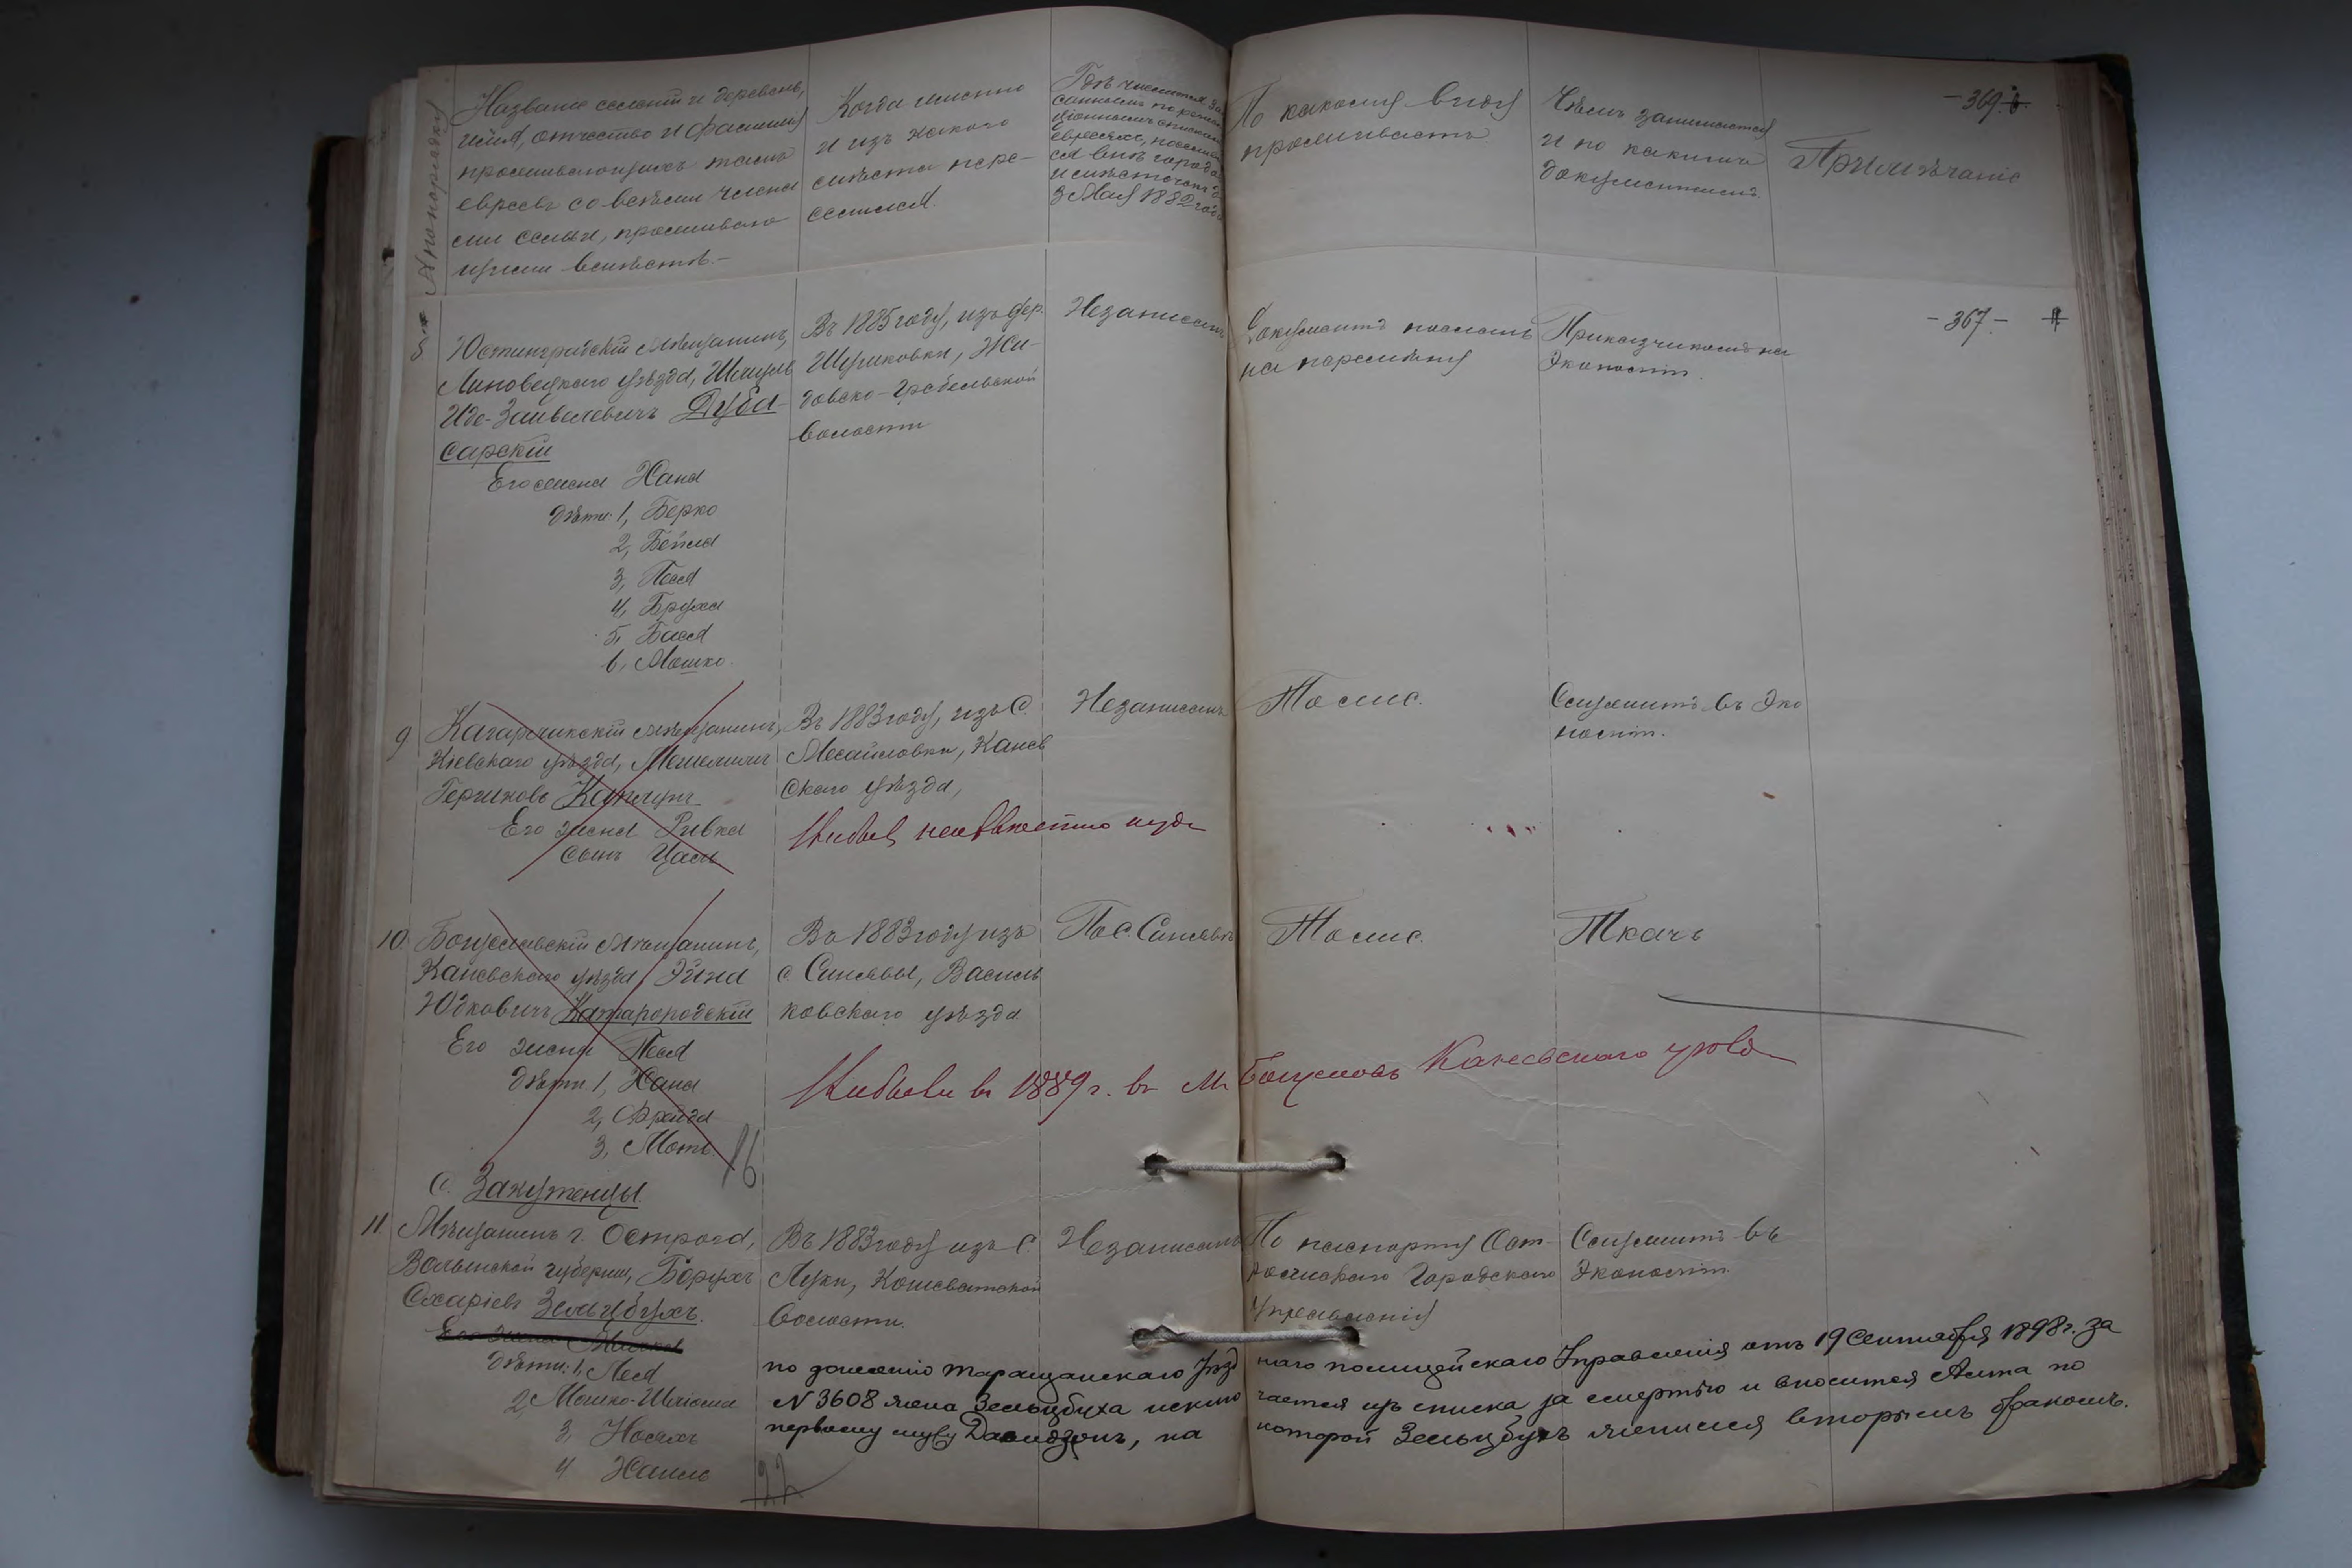 № по порядку
Названіе селеній и деревень,
имя, отчество и фамилія
проживающихъ тамъ
евреевъ со всѣми члена
ми семьи, проживаю
щими вмѣстѣ.-
Когда именно
и изъ какого
мѣста пере-
селился.
Гдѣ числится за
саннымъ по
евреямъ,
ся внѣ городовъ
и мѣстечекъ до
3 Мая 1882 года
По какому виду
проживаетъ
Чѣмъ занимается
и по какимъ
документамъ
Примѣчаніе
- 369.
Юстинградскій мѣщанинъ,
Липовецкаго уѣзда, Шмуль
Иде-Зайвелевичъ Дуба-
сарскій
Его жена Хана
дѣти: 1, Берко
2, Бейла
3, Песя
4, Бруха
5, Бася
6, Мошко.
Въ 1885 году, изъ дер.
Шуриковки, Жи-
довско-Гребельской
волости
Незаписанъ
Документъ посланъ
на перемѣну
Приказчикомъ на
Экономіи.
- 367 -
9
Кагарлыкскій мѣщанинъ,
Кіевскаго уѣзда,
Гершковъ Каплунъ
Его жена Ривка
сынъ
Въ 1883 году, изъ С.
Масайловки, Канев
скаго уѣзда,
Незаписанъ
Тоже.
Служитъ въ Эко
номіи.
Выбылъ неизвѣстно куда
10.
Богуславскій мѣщанинъ,
Каневскаго уѣзда,
Юдковичъ Катарогодскій
Его жена Песя
дѣти 1, Хана
2, Фрейда
3, Моть.
Въ 1883 году изъ
с Синявы, Василь
ковскаго уѣзда.
По с. Синявѣ
Тоже.
Ткачъ
Выбыли въ 1889 г. въ м. Богуславъ Каневскаго уѣзда
16
С. Закутенцы.
11.
Мѣщанинъ г. Острога,
Волынской губерніи, Борухъ
Сахаріевъ Зельцбухъ.
Его жена
дѣти: 1, Лея
2, Мошко-Шліома
3, Носехъ
4 Хаимъ
Въ 1883 году изъ С.
Луки, Кошеватской
волости.
Незаписанъ
По паспорту Ост-
рожскаго Городскаго
Управленія
Служитъ въ
Экономіи.
по донесенію Таращанскаго Уѣзд
наго полицейскаго Управленія отъ 19 Сентября 1898 г. за
N 3608 жена Зельцбуха исклю
чается изъ списка за смертью и вносится по
первому мужу Давидзонъ, на
которой Зельцбухъ женился вторымъ бракомъ.
22